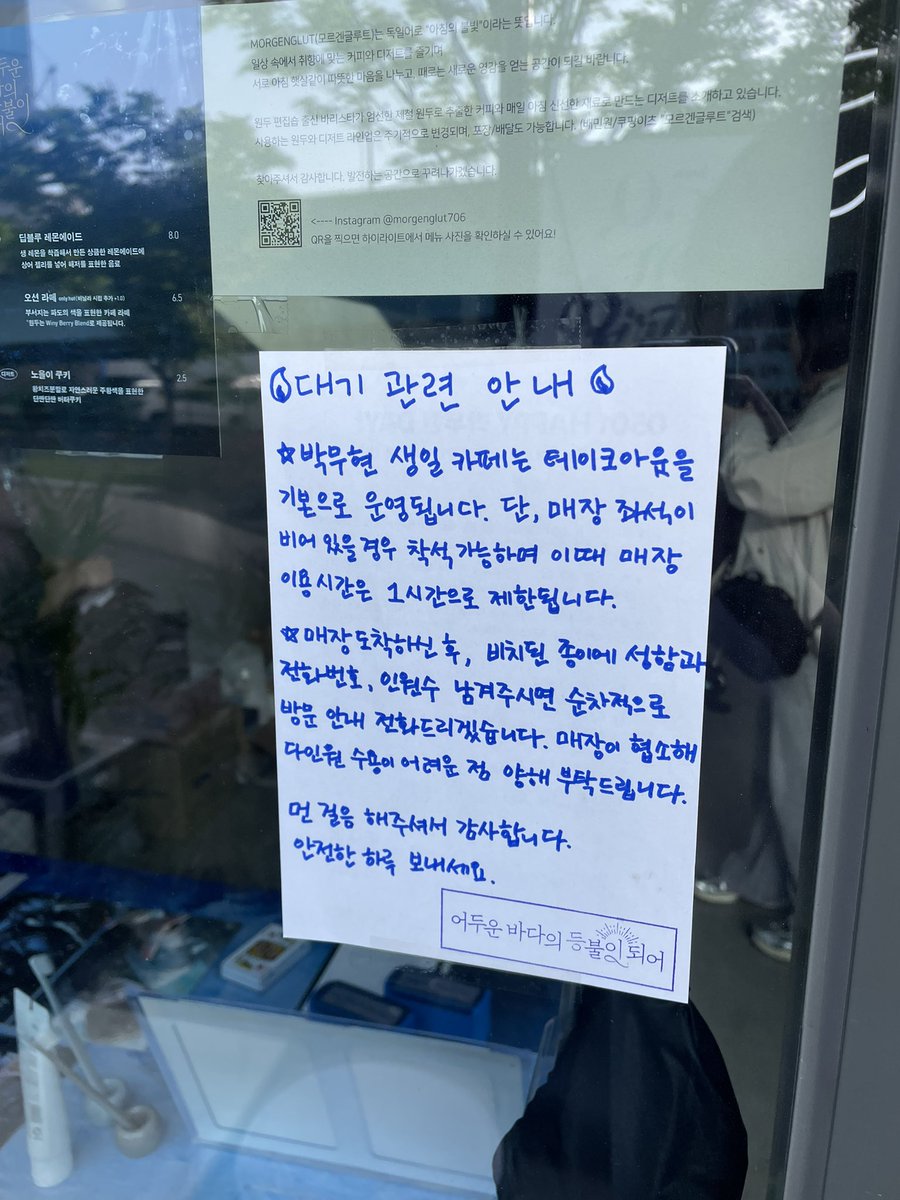 MORGENGLUT(모르겐글루트)는 독일어로 "아침의 불빛"이라는 뜻입니다.
일상 속에서 취향에 맞는 커피와 디저트를 즐기며
서로 아침 햇살같이 따뜻한 마음을 나누고, 때로는 새로운 영감을 얻는 공간이 되길 바랍니다.
원두 편집숍 출신 바리스타가 엄선한 제철 원두로 추출한 커피와 매일 아침 신선한 재료로 만드는 디저트를 소개하고 있습니다.
사용하는 원두와 디저트 라인업은 주기적으로 변경되며, 포장/배달도 가능합니다. (배민원/쿠팡이츠 "모르겐글루트"검색)
찾아주셔서 감사합니다. 발전하는 공간으로 꾸려나가겠습니다.
<---- Instagram @morgenglut706
QR을 찍으면 하이라이트에서 메뉴 사진을 확인하실 수 있어요!
딥블루 레몬에이드 8.0
생 레몬을 착즙해서 만든 상큼한 레몬에이드에
상어 젤리를 넣어 해저를 표현한 음료
오션 라떼 only hot (바닐라 시럽 추가 +1.0) 6.5
부서지는 파도의 색을 표현한 카페 라떼
*원두는 Winy Berry Blend로 제공됩니다.
디저트 노을이 쿠키 2.5
황치즈분말로 자연스러운 주황색을 표현한
단짠단짠 버터쿠키
대기 관련 안내
☆박무현 생일 카페는 테이크아웃을
기본으로 운영됩니다. 단, 매장 좌석이
비어 있을 경우 착석 가능하며 이때 매장
이용시간은 1시간으로 제한됩니다.
☆매장 도착하신 후, 비치된 종이에 성함과
전화번호, 인원수 남겨주시면 순차적으로
방문 안내 전화드리겠습니다. 매장이 협소해
다인원 수용이 어려운 점 양해 부탁드립니다.
먼 걸음 해주셔서 감사합니다.
안전한 하루 보내세요.
어두운 바다의 등불이 되어